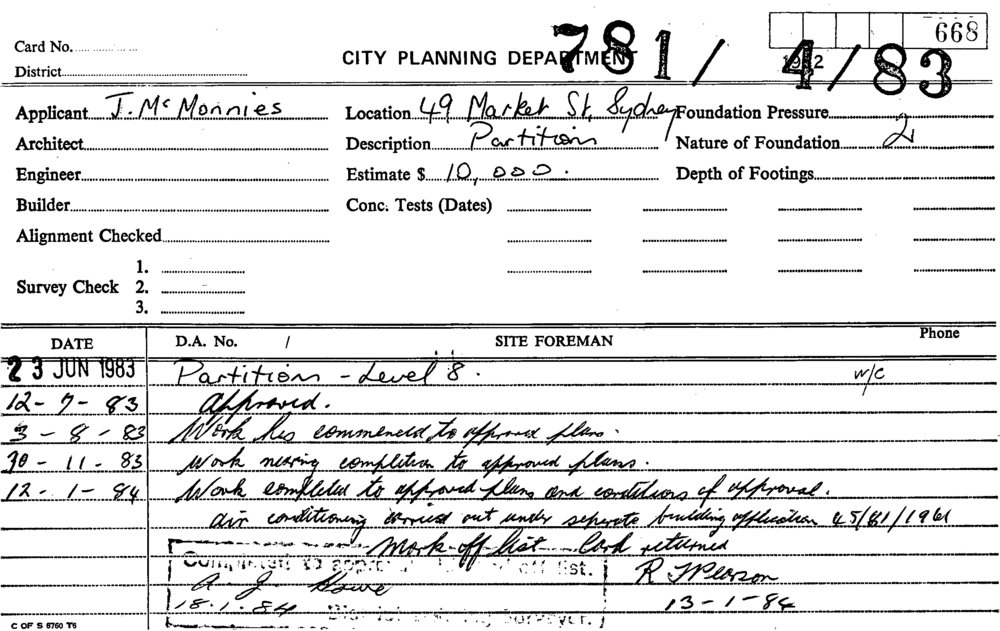 668
Card No.
CITY PLANNING DEPARTMENT
781/4/83
District
Applicant J. McMonnies Location 49 Market St, Sydney Foundation Pressure
Architect Description Partition Nature of Foundation 2
Engineer Estimate $ 10,000. Depth of Footings
Builder Conc. Tests (Dates)
Alignment Checked
1.
Survey Check 2.
3.
DATE D.A. No. / SITE FOREMAN Phone
23 JUN 1983 Partition - Level 8. w/c
12-7-83 Approved.
3-8-83 Work has commenced to approved plans.
30-11-83 Work nearing completion to approved plans.
12-1-84 Work completed to approved plans and conditions of approval.
Air conditioning carried out under seperate building application 45/81/1961
Mark off list Card returned
Completed to off list. R J Pearson
A J Howe 13-1-84
18.1.84 Surveyor.
C OF S 6760 T6